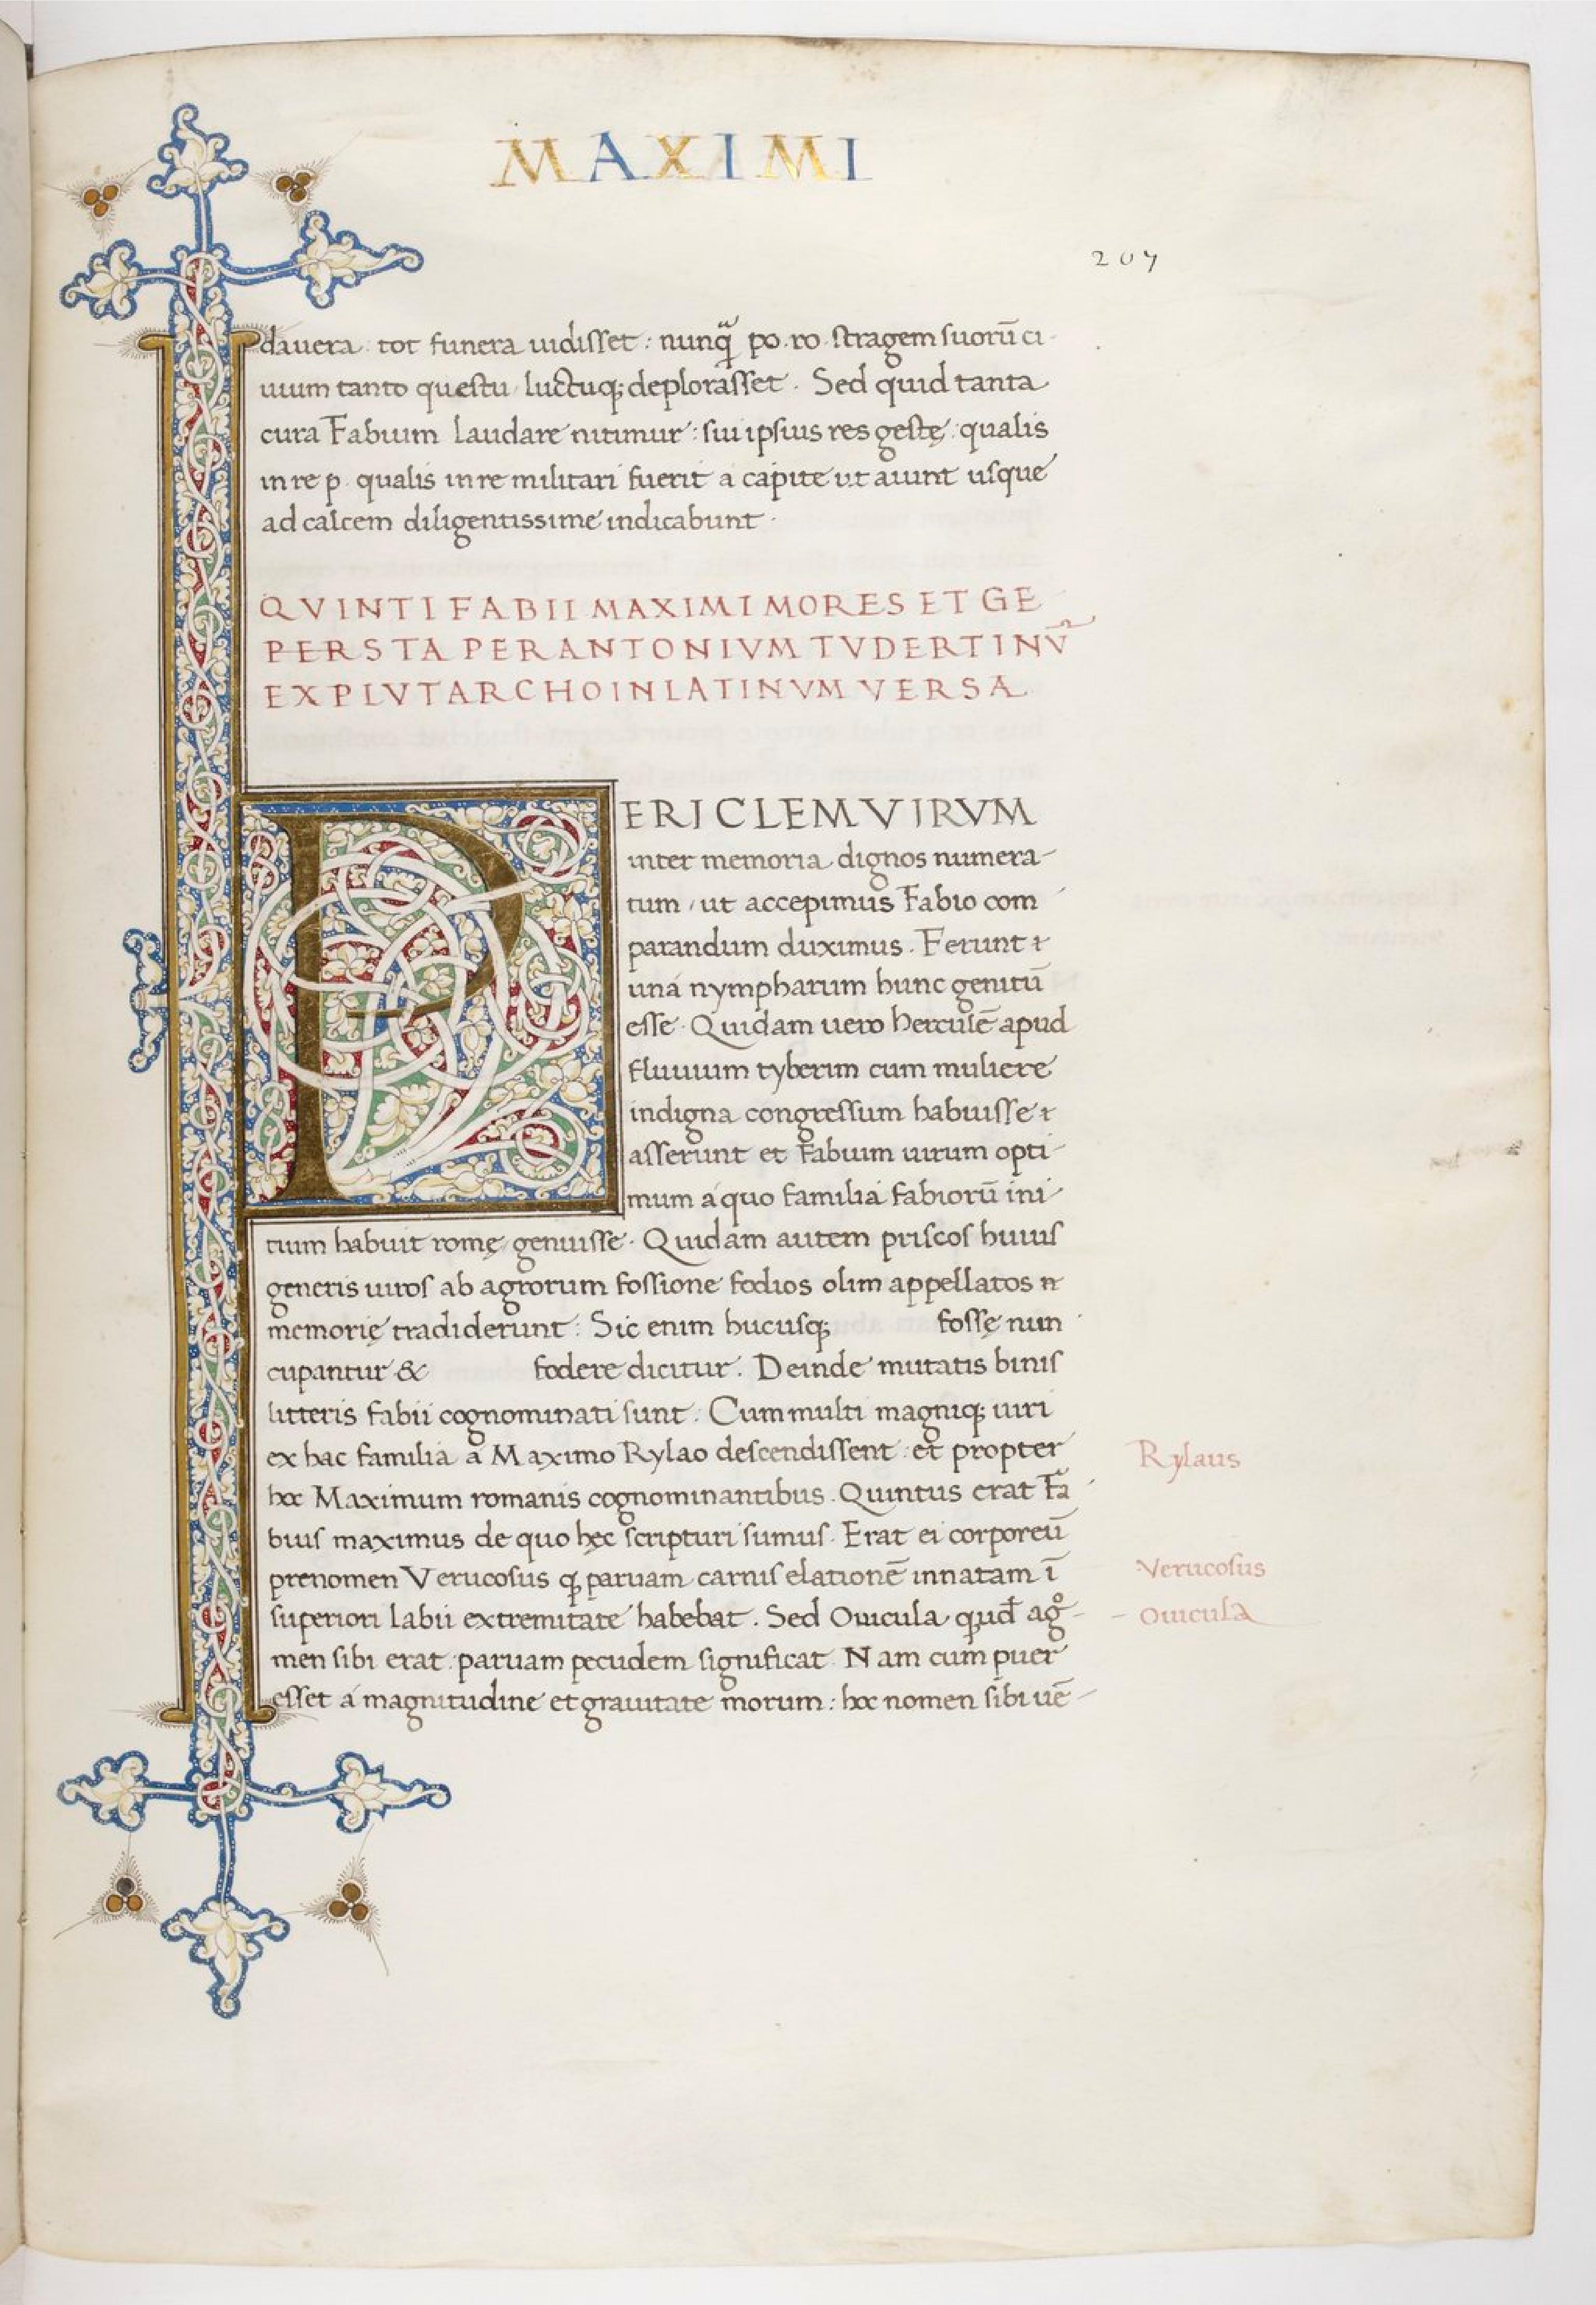 MAXIMI
207
dauera tot funera uidisset : nunqᷓ po.ro stragem suorū ci-
uium tanto questu luctuq; deplorasset . Sed quid tanta
cura Fabium laudare nitimur : sui ipsius res gestę : qualis
in re p. qualis in re militari fuerit a capite ut aiunt usque
ad calcem diligentissime indicabunt .
QVINTI FABII MAXIMI MORES ET GE
PERSTA PER ANTONIVM TVDERTINV̄
EX PLVTARCHO IN LATINVM VERSA
PERICLEM VIRVM
inter memoria dignos numera-
tum , ut accepimus Fabio com
parandum duximus . Ferunt &
una nympharum hunc genitū
esse . Quidam uero herculē apud
fluuium tyberim cum muliere
indigna congressum habuisse &
asserunt et Fabium uirum opti-
mum a quo familia fabiorū ini-
tium habuit romę genuisse . Quidam autem priscos huius
generis uiros ab agrorum fossione fodios olim appellatos
memorię tradiderunt : Sic enim hucusq; fossę nun
cupantur & fodere dicitur . Deinde mutatis binis
litteris fabii cognominati sunt . Cum multi magniq; uiri
ex hac familia a Maximo Rylao descendissent : et propter
hoc Maximum romanis cognominantibus . Quintus erat Fa
bius maximus de quo hęc scripturi sumus . Erat ei corporeū
prenomen Verucosus ꝙ paruam carnis elationē innatam ī
superiori labii extremitate habebat . Sed Ouicula quod agº-
men sibi erat : paruam pecudem significat . Nam cum puer
esset a magnitudine et grauitate morum : hoc nomen sibi uē-
Rylaus
Verucosus
Ouicula